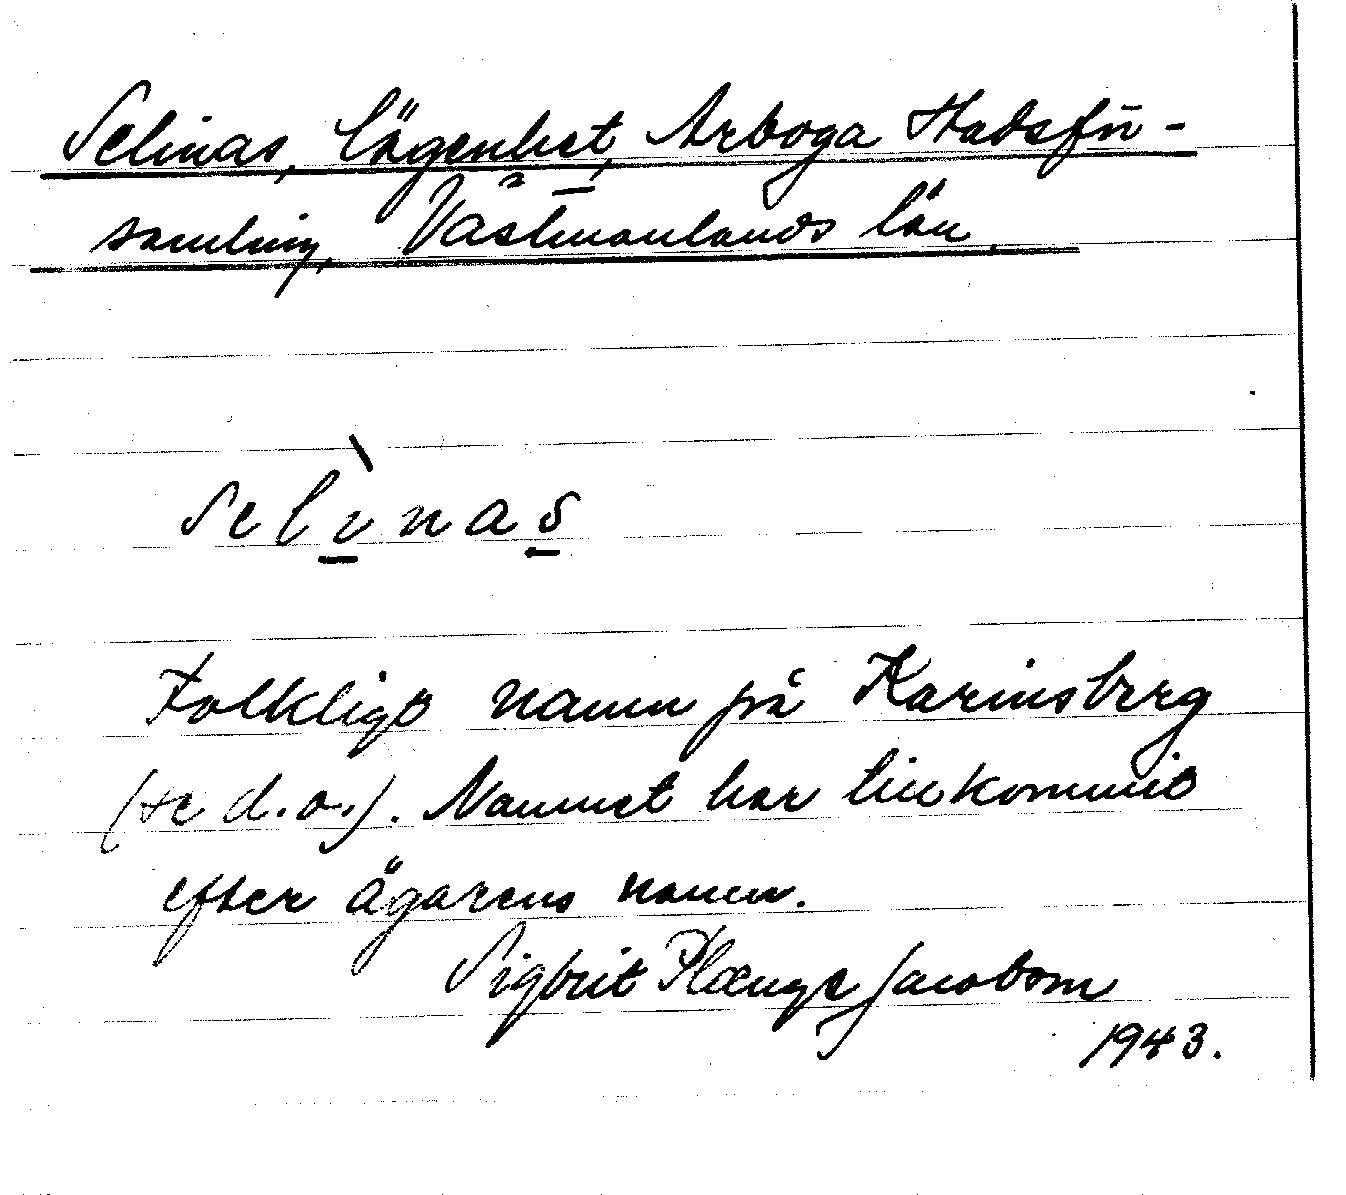 Selinas, lägenhet, Arboga Stadsför-
samling, Västmanlands län.
Selinas
Folkligt namn på Karinsberg
(se d.o.). Namnet har tillkommit
efter ägarens namn.
Sigbrit Plænge Jacobson
1943.